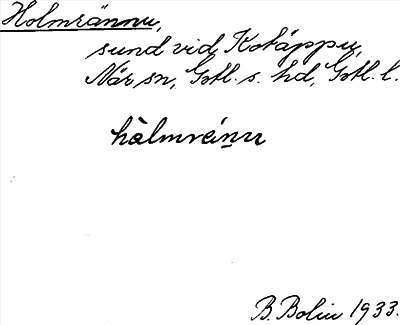 Holmrännu,
sund vid Kotäppu,
När sn, Gotl. s. hd, Gotl. l.
hàlmrénu
B. Bolin 1933.